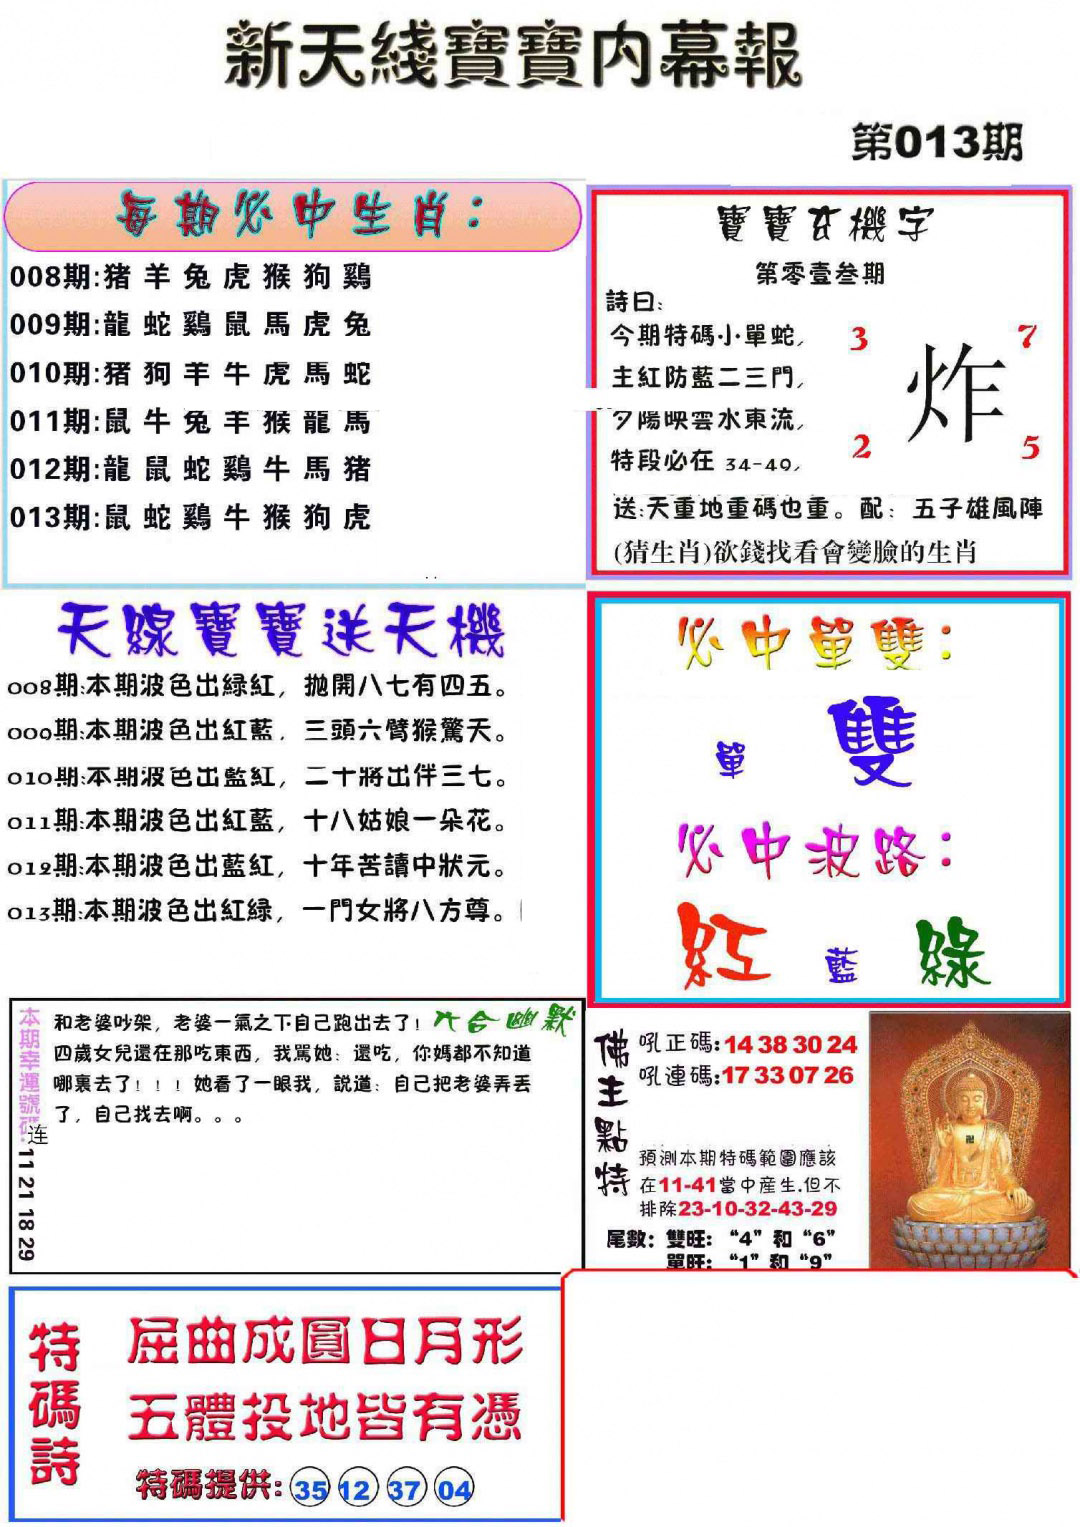 新天綫寶寶内幕報
第013期
每期必中生肖：
008期:猪羊兔虎猴狗鷄
009期:龍蛇鷄鼠馬虎兔
010期:猪狗羊牛虎馬蛇
011期:鼠牛兔羊猴龍馬
012期:龍鼠蛇鷄牛馬猪
013期:鼠蛇鷄牛猴狗虎
寶寶玄機字
第零壹叁期
詩曰:
今期特碼小單蛇,
主紅防藍二三門,
夕陽映雲水東流,
特段必在 34-49,
3 7
炸
2 5
送:天重地重碼也重。配：五子雄風陣
(猜生肖)欲錢找看會變臉的生肖
天線寶寶送天機
008期:本期波色出緑紅，抛開八七有四五。
009期:本期波色出紅藍，三頭六臂猴驚天。
010期:本期波色出藍紅，二十將出伴三七。
011期:本期波色出紅藍，十八姑娘一朵花。
012期:本期波色出藍紅，十年苦讀中狀元。
013期:本期波色出紅緑，一門女將八方尊。
必中單雙：
單 雙
必中波路：
紅 藍 綠
本期幸運號碼:
连
11 21 18 29
六合幽默
和老婆吵架，老婆一氣之下自己跑出去了！
四歲女兒還在那吃東西，我罵她：還吃，你媽都不知道
哪裏去了！！！她看了一眼我，説道：自己把老婆弄丢
了，自己找去啊。。。
佛主點特
吼正碼:14 38 30 24
吼連碼:17 33 07 26
預測本期特碼範圍應該
在11-41當中産生.但不
排除23-10-32-43-29
尾數：雙旺：“4”和“6”
單旺：“1”和“9”
特碼詩
屈曲成圓日月形
五體投地皆有憑
特碼提供: 35 12 37 04